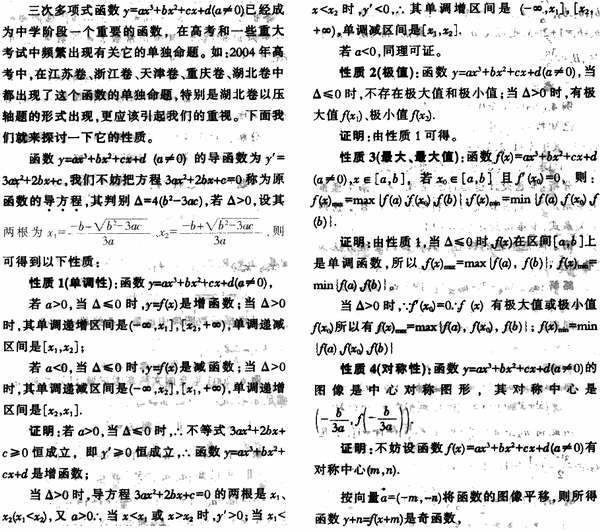 三次多项式函数 y=ax³+bx²+cx+d(a≠0)已经成
为中学阶段一个重要的函数，在高考和一些重大
考试中频繁出现有关它的单独命题。如：2004年高
考中,在江苏卷、浙江卷、天津卷、重庆卷、湖北卷中
都出现了这个函数的单独命题,特别是湖北卷以压
轴题的形式出现,更应该引起我们的重视。下面我
们就来探讨一下它的性质。
函数 y=ax³+bx²+cx+d (a≠0) 的导函数为 y′=
3ax²+2bx+c,我们不妨把方程 3ax²+2bx+c=0 称为原
函数的导方程,其判别 Δ=4(b²-3ac),若 Δ>0,设其
两根为 x₁=(-b-√(b²-3ac))/3a ,x₂=(-b+√(b²-3ac))/3a ,则
可得到以下性质：
性质 1(单调性):函数 y=ax³+bx²+cx+d(a≠0),
若 a>0,当 Δ≤0 时,y=f(x)是增函数；当 Δ>0
时,其单调递增区间是(-∞,x₁],[x₂,+∞),单调递减
区间是[x₁,x₂]；
若 a<0,当 Δ≤0 时,y=f(x)是减函数；当 Δ>0
时,其单调递减区间是(-∞,x₂],[x₁,+∞),单调递增
区间是[x₂,x₁].
证明:若 a>0,当 Δ≤0 时,∴不等式 3ax²+2bx+
c≥0 恒成立，即 y′≥0 恒成立,∴函数 y=ax³+bx²+
cx+d 是增函数；
当 Δ>0 时,导方程 3ax²+2bx+c=0 的两根是 x₁、
x₂(x₁<x₂),又 a>0∴当 x<x₁ 或 x>x₂ 时,y′>0；当 x₁<
x<x₂ 时,y′<0,∴其单调增区间是 (-∞,x₁],[x₂,
+∞),单调减区间是[x₁,x₂].
若 a<0,同理可证。
性质 2(极值):函数 y=ax³+bx²+cx+d(a≠0),当
Δ≤0 时,不存在极大值和极小值；当 Δ>0 时,有极
大值 f(x₁)、极小值 f(x₂).
证明:由性质 1 可得。
性质 3(最大、最大值):函数 f(x)=ax³+bx²+cx+d
(a≠0),x∈[a,b]，若 x₀∈[a,b] 且 f′(x₀)=0，则：
f(x)max=max{f(a),f(x₀),f(b)};f(x)min=min{f(a),f(x₀),f(
b)}.
证明:由性质 1,当 Δ≤0 时,f(x)在区间[a,b]上
是单调函数,所以 f(x)max=max{f(a), f(b)}；f(x)min=
min{f(a),f(b)}。
当 Δ>0 时,∴f′(x₀)=0.∴f (x) 有极大值或极小值
f(x₀)所以有 f(x)max=max{f(a), f(x₀), f(b)}；f(x)min=min
{f(a),f(x₀),f(b)}
性质 4(对称性):函数 y=ax³+bx²+cx+d(a≠0)的
图像是中心对称图形，其对称中心是
(-b/3a,f(-b/3a)).
证明:不妨设函数 f(x)=ax³+bx²+cx+d(a≠0)有
对称中心(m,n).
按向量a=(-m,-n)将函数的图像平移,则所得
函数 y+n=f(x+m)是奇函数,